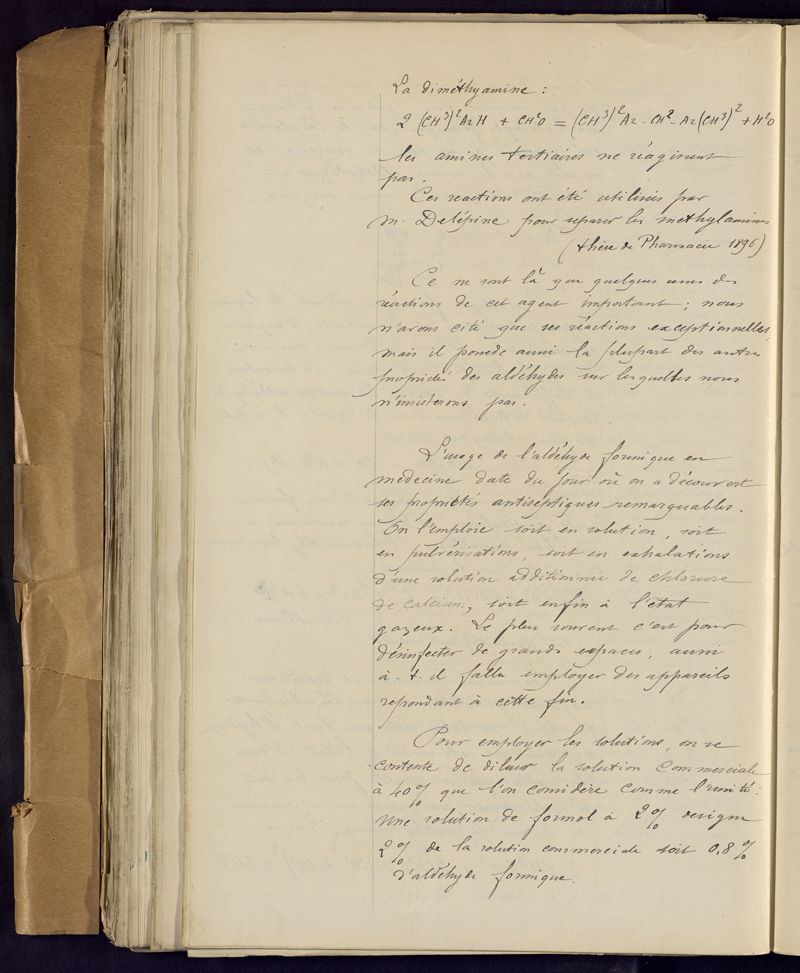 La diméthyamine :
2 (CH³)²AzH + CH²O = (CH³)²Az - CH² - Az(CH³)² + H²O
les amines tertiaires ne réagissent
pas.
Ces reactions ont été utilisées par
M. Delépine pour separer les methylamines
(thèse de Pharmacie 1896)
Ce ne sont là que quelques unes des
réactions de cet agent important ; nous
n'avons cité que ses réactions exceptionnelles,
mais il possede aussi la plupart des autres
propriétés des aldéhydes sur lesquelles nous
n'insisterons pas.
L'usage de l'aldéhyde formique en
medecine date du jour où on a découvert
ses propriétés antiseptiques remarquables.
On l'emploie soit en solution, soit
en pulvérisations, soit en exhalations
d'une solution additionnée de chlorure
de calcium, soit enfin à l'état
gazeux. Le plus souvent c'est pour
désinfecter de grands espaces, aussi
a-t-il fallu employer des appareils
repondant à cette fin.
Pour employer les solutions, on se
contente de diluer la solution commerciale
à 40% que l'on considère comme l'unité :
une solution de formol à 2% designe
2% de la solution commerciale soit 0,8%
d'aldéhyde formique.